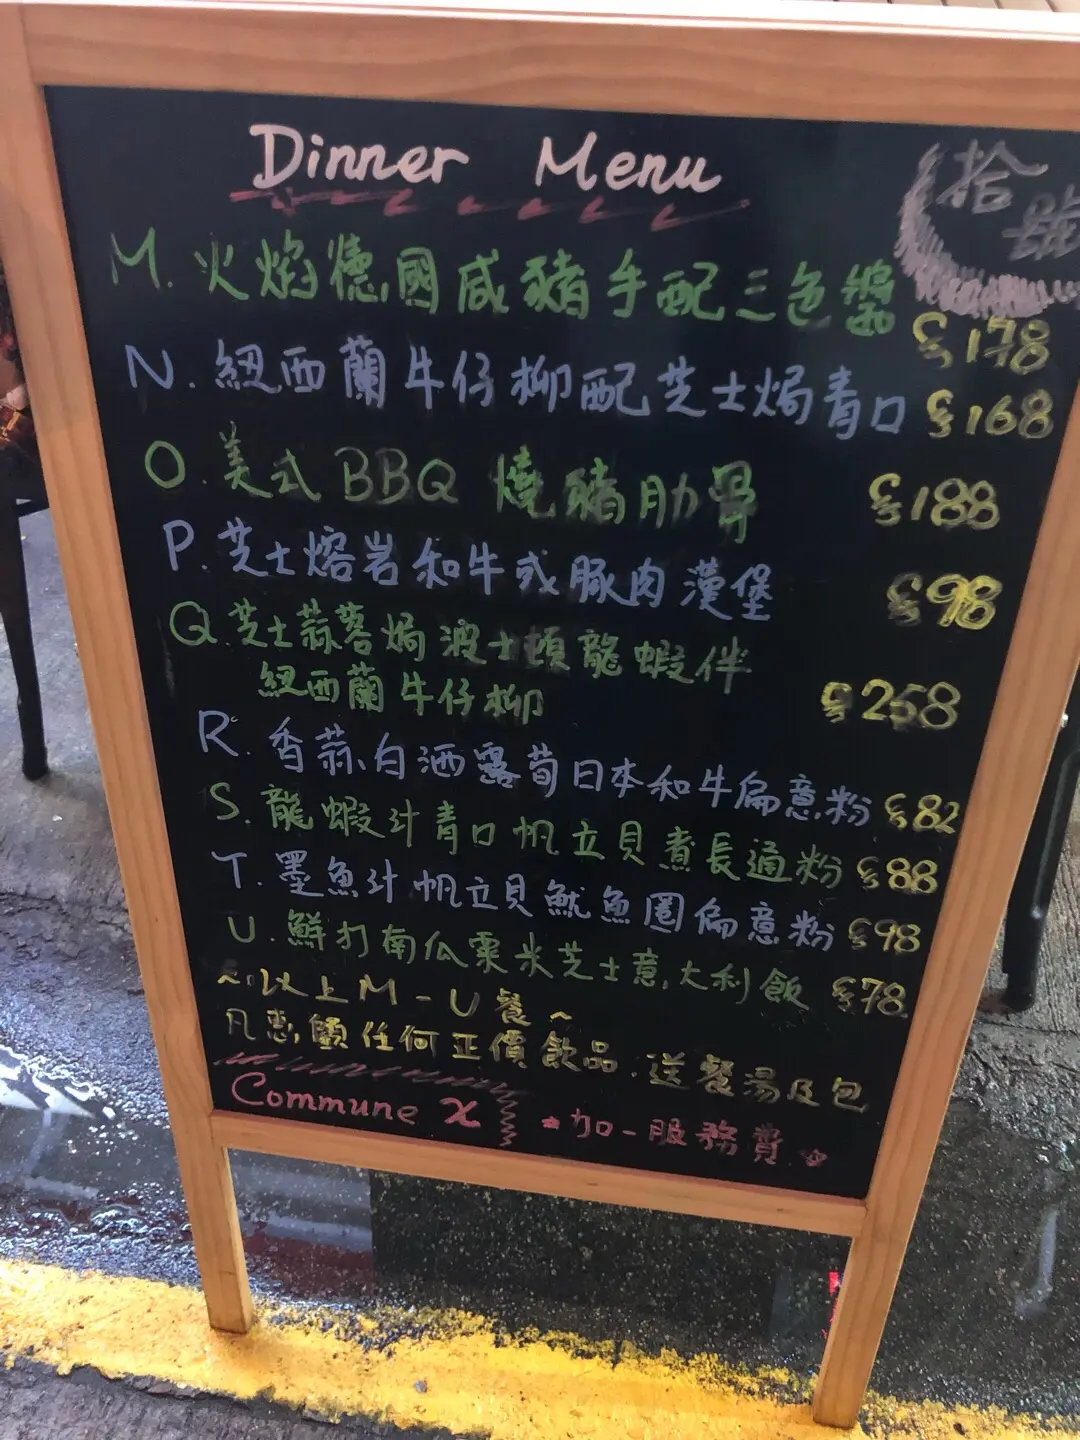 Dinner Menu
拾
號
M. 火焰德國咸豬手配三色醬 $178
N. 紐西蘭牛仔柳配芝士焗青口 $168
O. 美式BBQ 燒豬肋骨 $188
P. 芝士熔岩和牛或豚肉漢堡 $98
Q. 芝士蒜蓉焗波士頓龍蝦伴
紐西蘭牛仔柳 $258
R. 香蒜白洒露荀日本和牛扁意粉 $82
S. 龍蝦汁青口帆立貝煮長通粉 $88
T. 墨魚汁帆立貝魷魚圈扁意粉 $98
U. 鮮打南瓜粟米芝士意大利飯 $78
~以上M-U餐~
凡惠顧任何正價飲品.送餐湯及包
Commune X *加一服務費